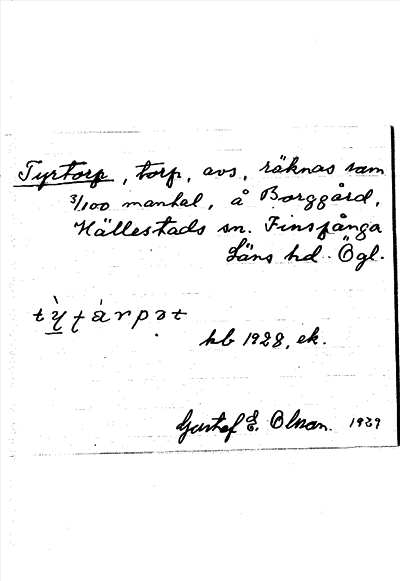 Tyrtorp, torp, avs, räknas som
3/100 mantal, å Borggård,
Hällestads sn. Finspånga
Läns hd. Ögl.
kb 1928, ek.
Gustaf E. Olsson. 1929